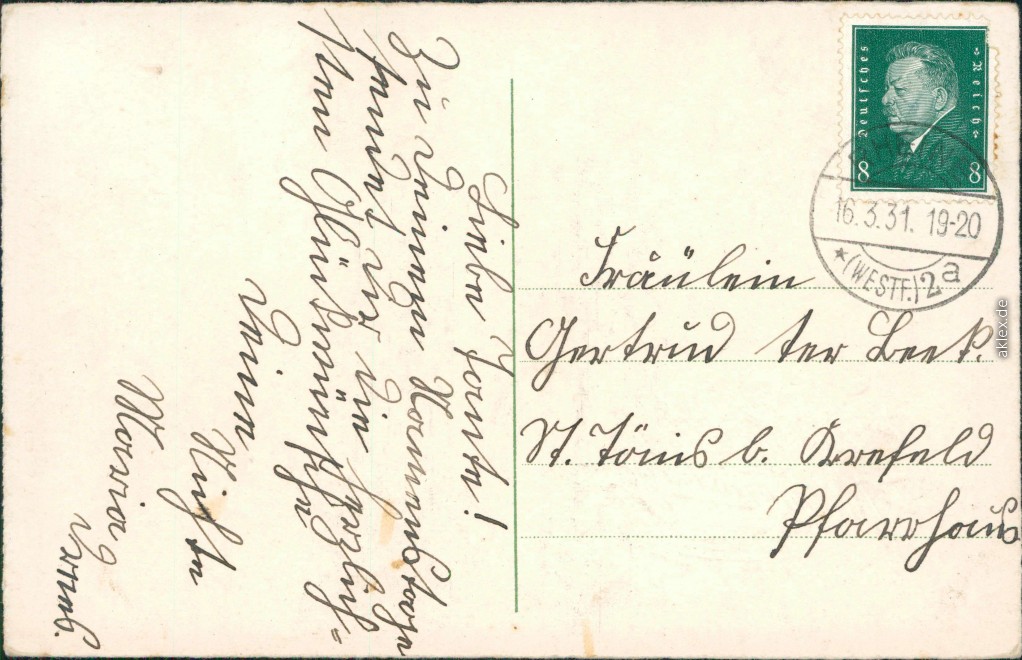 Liebe Tante!
Zu Deinem Namenstage
sendet dir die herzlich=
sten Glückwünsche
Deine
Nichte
Maria
Deutsches Reich
8 8
16.3.31. 19-20
(WESTF.) 2a
Fräulein
Gertrud ter Beek.
St. Tönis b. Krefeld
Pfarrhaus
aklex.de